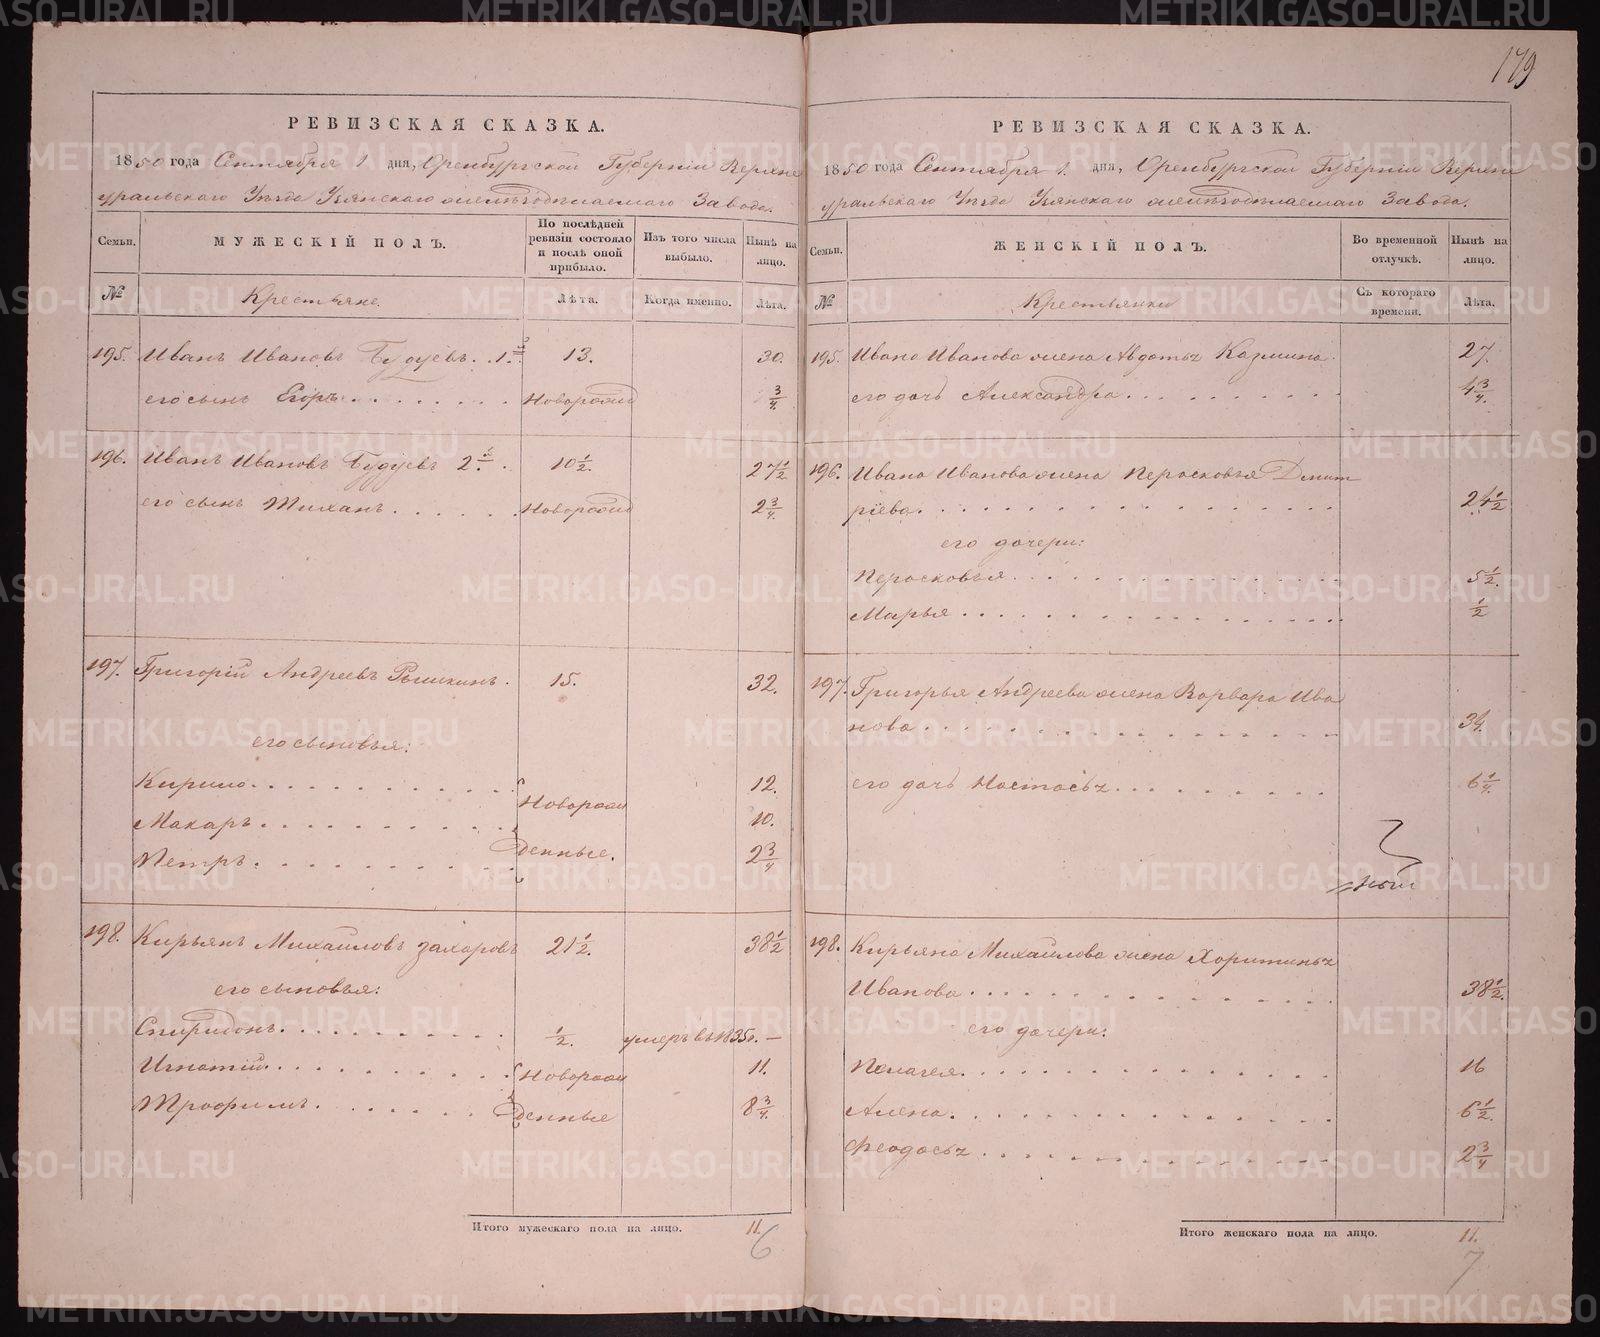 179
РЕВИЗСКАЯ СКАЗКА.
1850 года Сентября 1 дня, Оренбургской Губернiи Верхне
уральскаго Уѣзда Узянскаго желѣзодѣлаемаго Завода.
Семьи.
МУЖЕСКIЙ ПОЛЪ.
По послѣдней ревизiи состояло и послѣ оной прибыло.
Изъ того числа выбыло.
Нынѣ на лицо.
№
Крестьяне.
Лѣта.
Когда именно.
Лѣта.
195. Иванъ Ивановъ Будуевъ. 1.й 13. 30.
его сынъ Егоръ Новорожд 3/4.
196. Иванъ Ивановъ Будуевъ 2.й 10 1/2. 27 1/2
его сынъ Тиханъ Новорожд 2 3/4.
197. Григорiй Андреевъ Рышкинъ. 15. 32.
его сыновья:
Кирило Новорож 12.
Макаръ 10.
Петръ денные. 2 3/4
198. Кирьянъ Михайловъ Захаровъ 21 1/2. 38 1/2
его сыновья:
Спиридонъ 1/2. умеръ въ 1835г. —
Игнатiй Новорож 11.
Трофимъ денные 8 3/4.
Итого мужескаго пола на лицо. 11.
6
РЕВИЗСКАЯ СКАЗКА.
1850 года Сентября 1. дня, Оренбургской Губернiи Верхне
уральскаго Уѣзда Узянскаго желѣзодѣлаемаго Завода.
Семьи.
ЖЕНСКIЙ ПОЛЪ.
Во временной отлучкѣ.
Нынѣ на лицо.
№
Крестьянки
Съ котораго времени.
Лѣта.
195. Ивана Иванова жена Авдотья Казмина 27.
его дочь Александра 4 3/4.
196. Ивана Иванова жена Перасковья Дмит
рiева 24 1/2
его дочери:
Перасковья 5 1/2.
Марья 1/2
197. Григорья Андреева жена Варвара Ива
нова 34.
его дочь Настасья 6 1/4.
198. Кирьяна Михайлова жена Харитинья
Иванова 38 1/2.
его дочери:
Пелагея 16
Алена 6 1/2.
Феодосья 2 3/4
Итого женскаго пола на лицо. 11.
7
METRIKI.GASO-URAL.RU